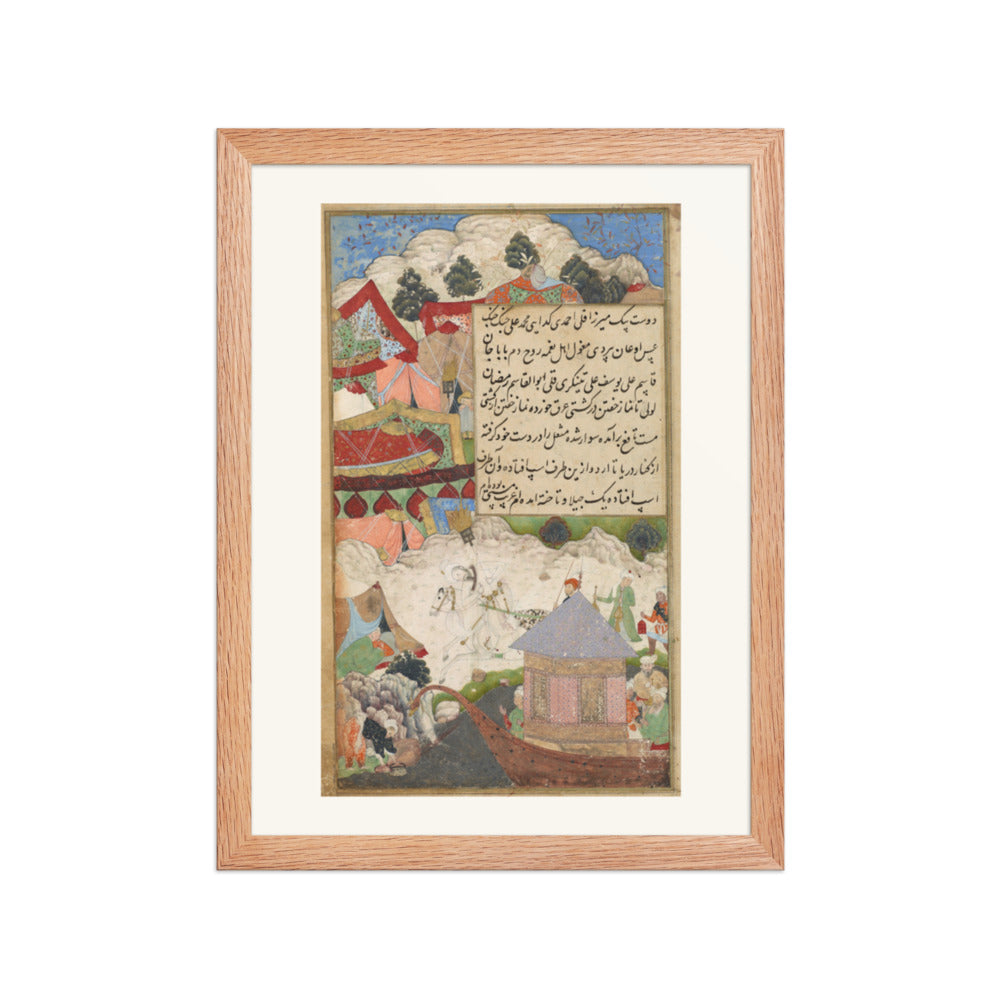 دوست بیک میرزا قلی احمدی کدایی محمد علی جنک جنک
پسر اوغان بردی مغول اهل نغمه روح دم بابا جان
قاسم علی یوسف علی تینکری قلی ابو القاسم رمضان
لولی تا نماز خفتن در کشتی عرق خورده نماز خفتن از کشتی
مست تافغ برآمده سوار شده مشعل را در دست خود کرفته
از کنار دریا تا اردو ازین طرف اسپ افتاده و آن طرف
اسپ افتاده یک جیلاو تاخته آمده ام غریب مستی بوده ام